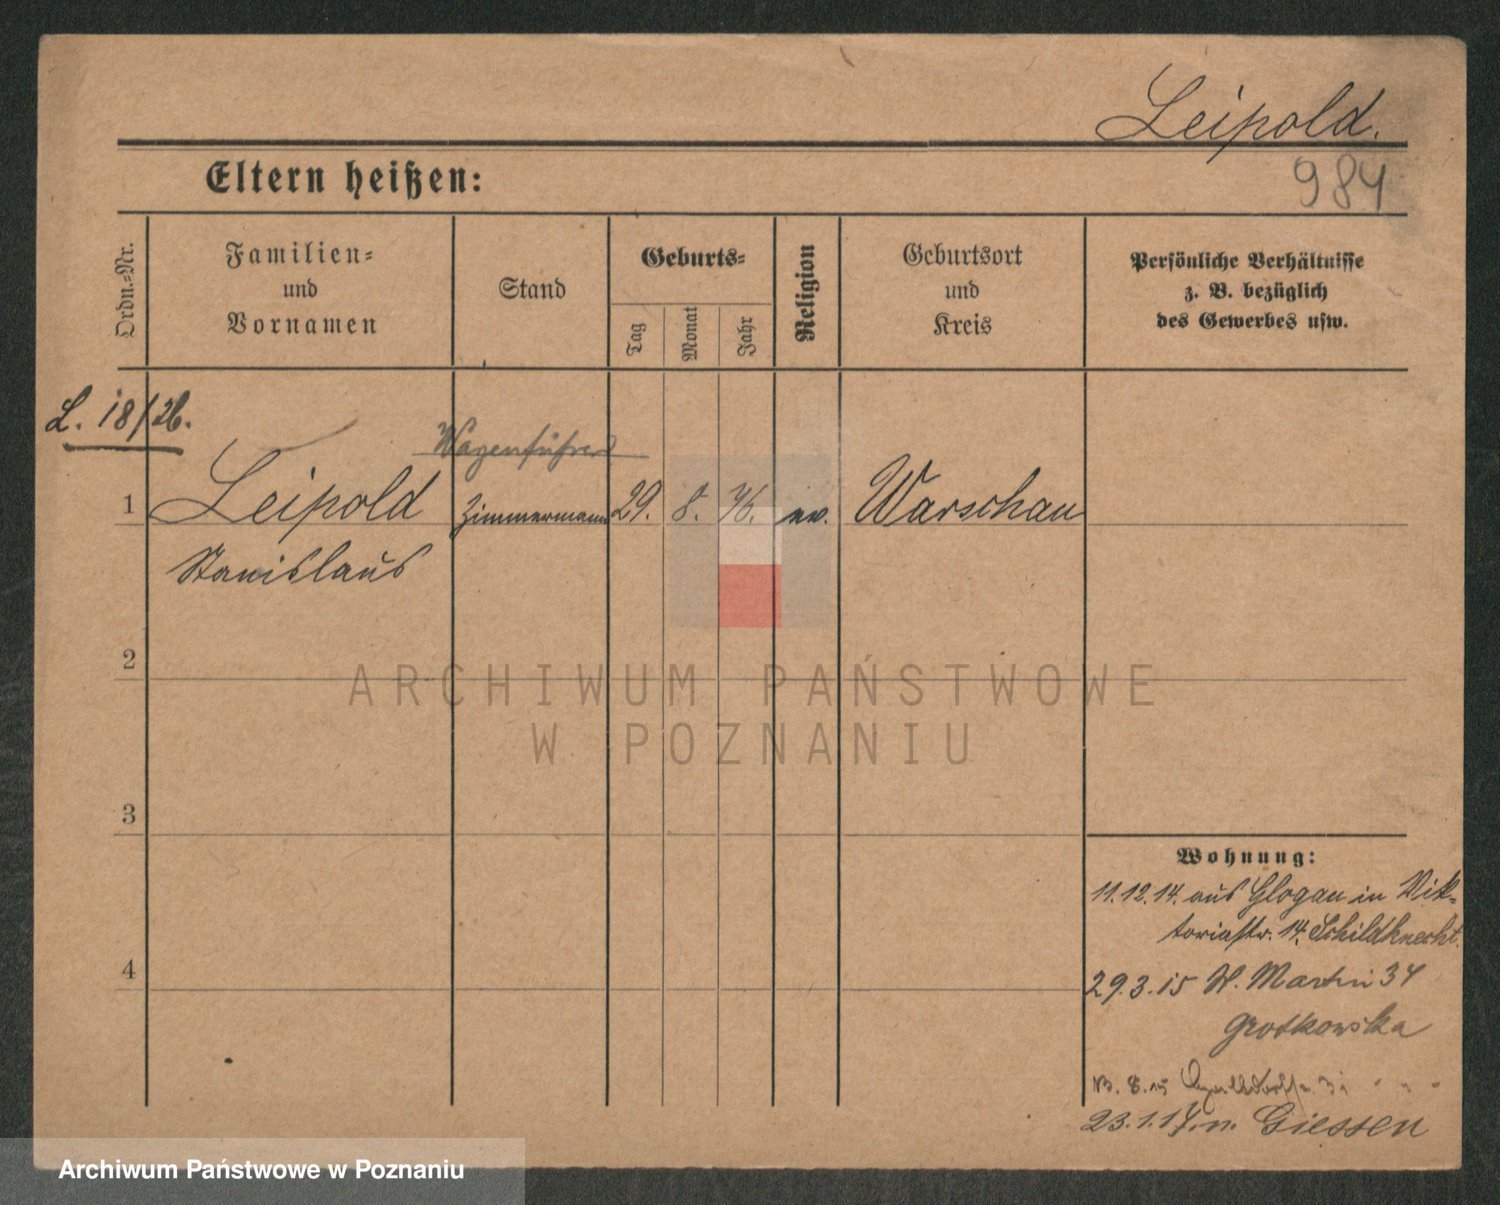 Leipold.
984
Eltern heißen:
Ordn.-Nr.
Familien-
und
Vornamen
Stand
Geburts-
Tag
Monat
Jahr
Religion
Geburtsort
und
Kreis
Persönliche Verhältnisse
z. B. bezüglich
des Gewerbes usw.
L. 18/26.
Wagenführer
1 Leipold Zimmermann 29. 8. 76. ev. Warschau
Stanislaus
2
3
4
ARCHIWUM PAŃSTWOWE
W POZNANIU
Wohnung:
11.12.14. aus Glogau in Vik-
toriastr. 14. Schildknecht.
29.3.15 W. Martin 34
Grotkowska
8.15
23.1.17. n. Giessen
Archiwum Państwowe w Poznaniu